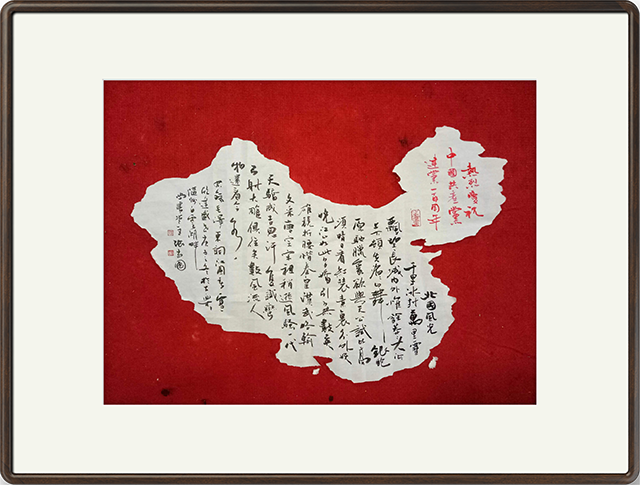 熱烈慶祝
中國共產黨
建黨一百周年
北國風光
千里冰封萬里雪
飄望长城内外惟餘莽莽大河
上下頓失滔滔山舞銀蛇
原馳蠟象欲與天公試比高
須晴日看紅裝素裹分外妖
嬈江山如此多嬌引無數英
雄競折腰惜秦皇漢武略輸
文采唐宗宋祖稍遜風騷一代
天驕成吉思汗只識彎
弓射大雕俱往矣數風流人
物還看今朝